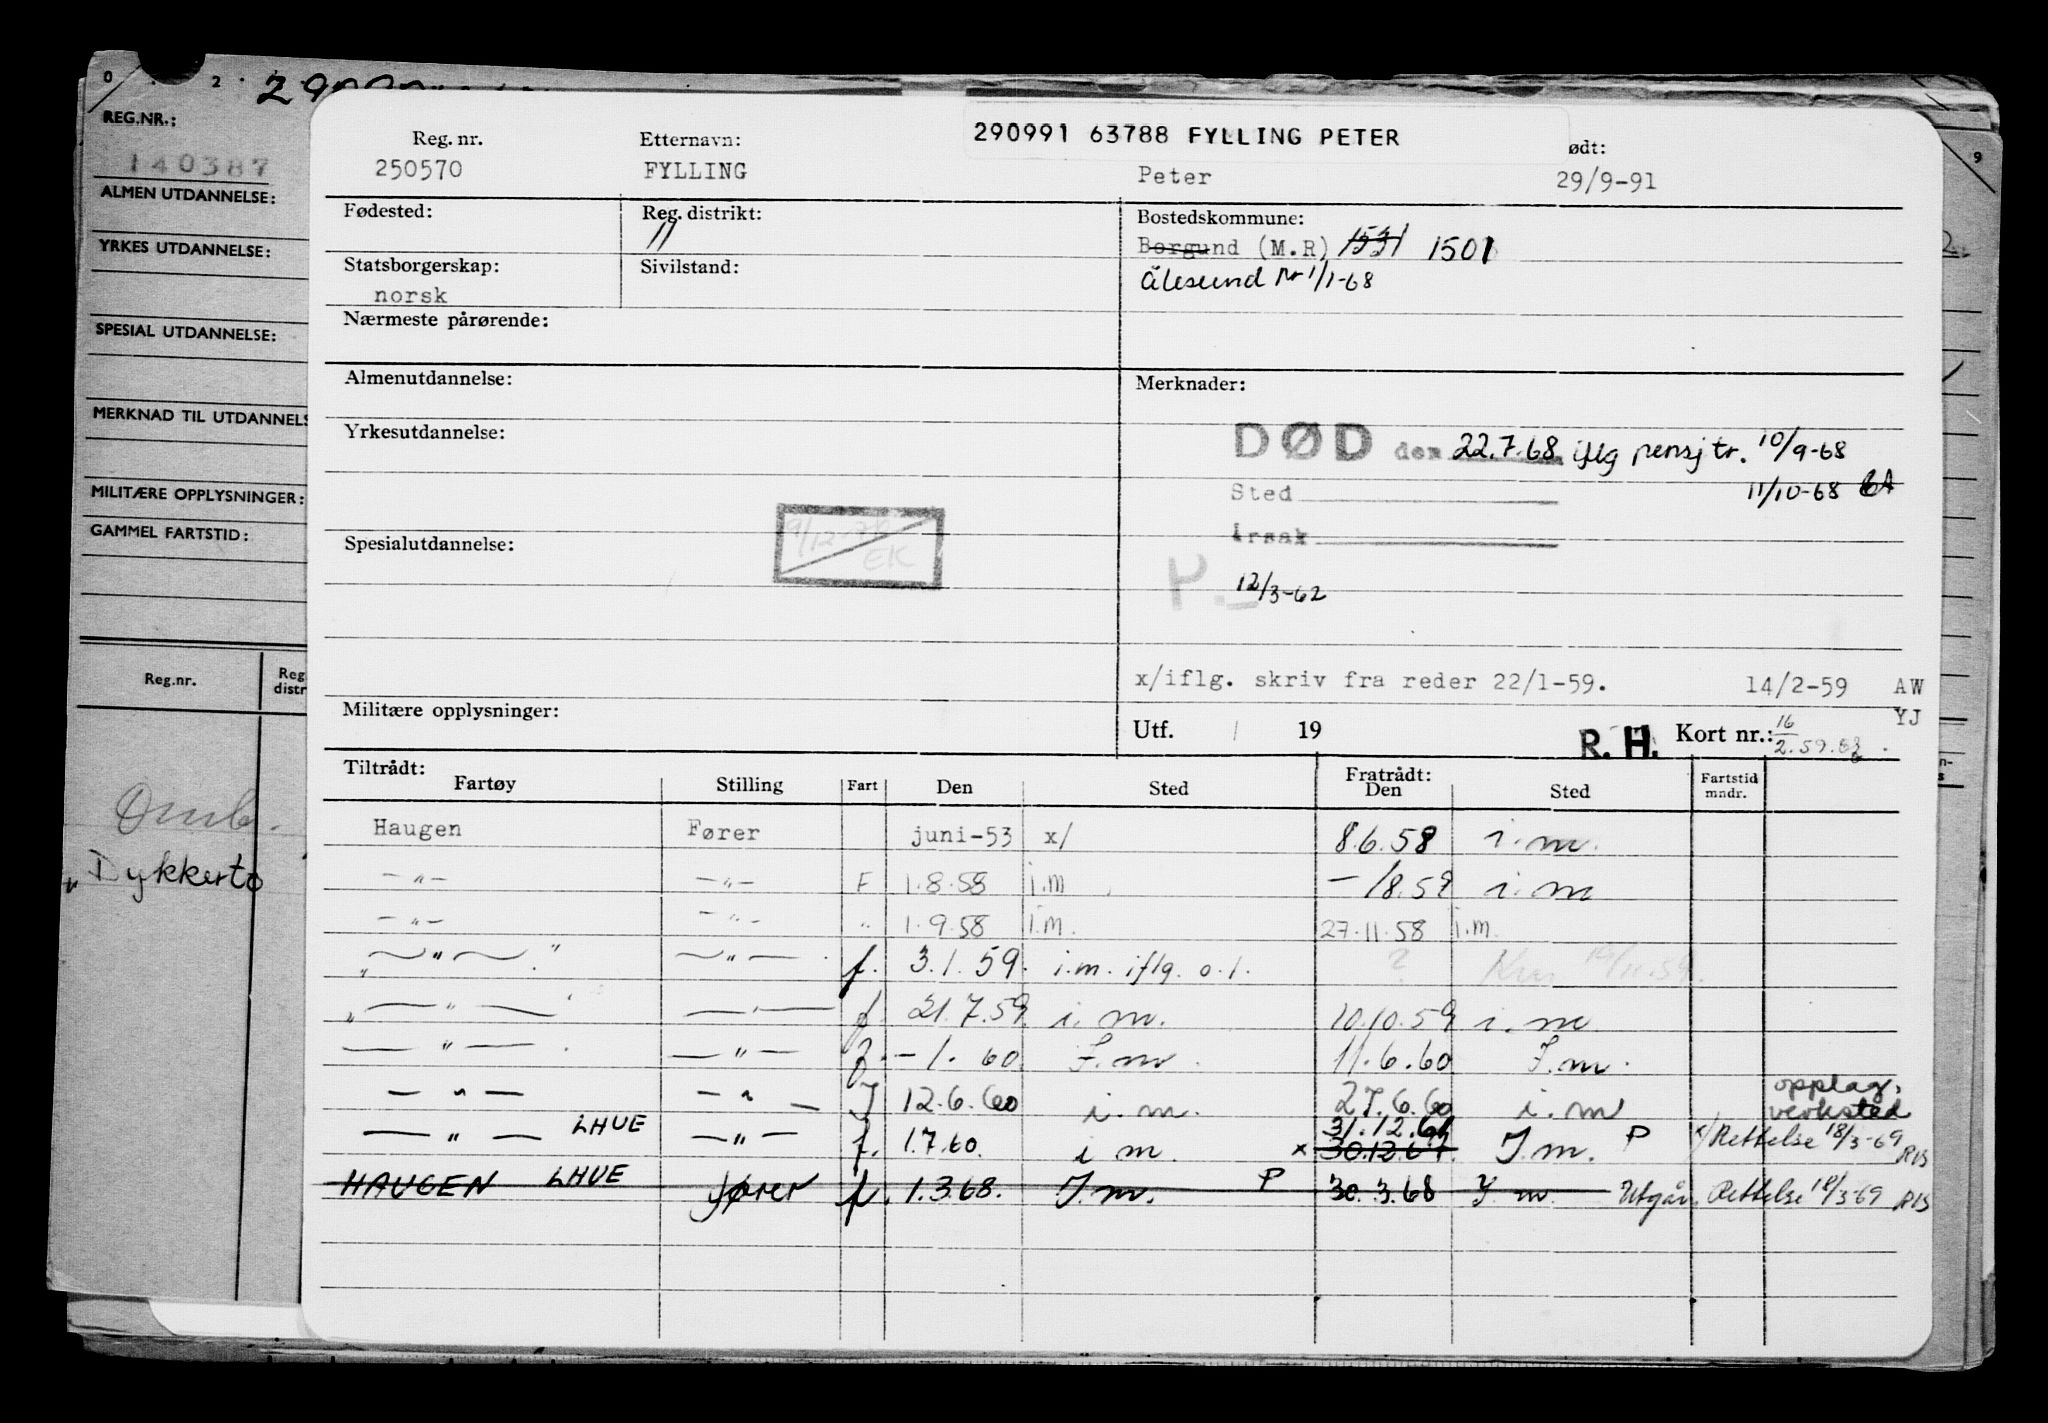 0 2 9
REG.NR.:
140387
ALMEN UTDANNELSE:
YRKES UTDANNELSE:
SPESIAL UTDANNELSE:
MERKNAD TIL UTDANNELS
MILITÆRE OPPLYSNINGER:
GAMMEL FARTSTID:
Reg.nr. Reg distr
Dykkerto
290991 63788 FYLLING PETER
Reg. nr. Etternavn: ødt:
250570 FYLLING Peter 29/9-91
Fødested: Reg. distrikt: Bostedskommune:
11 Borgund (M.R) 1531 1501
Statsborgerskap: Sivilstand: Ålesund pr 1/1-68
norsk
Nærmeste pårørende:
Almenutdannelse: Merknader:
Yrkesutdannelse: DØD den 22.7.68 iflg pensjtr. 10/9-68
Sted 11/10-68
Årsak
Spesialutdannelse: 9/12 EK
P. 12/3-62
x/iflg. skriv fra reder 22/1-59. 14/2-59 AW
YJ
Militære opplysninger: Utf. / 19 R. H. Kort nr.: 16/2.59.
Tiltrådt: Fratrådt:
Fartøy Stilling Fart Den Sted Den Sted Fartstid mndr.
Haugen Fører juni-53 x/ 8.6.58 i.m.
—"— —"— F 1.8.58 i.m — /8.59 i.m
—"— —"— " 1.9.58 i.m. 27.11.58 i.m.
—"— —"— f. 3.1.59. i.m. iflg. o.l. ? 19/11.59.
—"— —"— f 21.7.59 i.m. 10.10.59 i.m
—"— —"— f. -1.60 I.m. 11.6.60 I.m.
—"— —"— 12.6.60 i.m. 27.6.60 i.m opplag. verksted
—"— LHUE —"— f. 1.7.60. i m. x 30.12.67. 31.12.61 I.m. P x/ Rettelse 18/3-69 RIS
HAUGEN LHUE fører f. 1.3.68. I.m. P 30.3.68 I m. Utgår. Rettelse 18/3-69 RIS